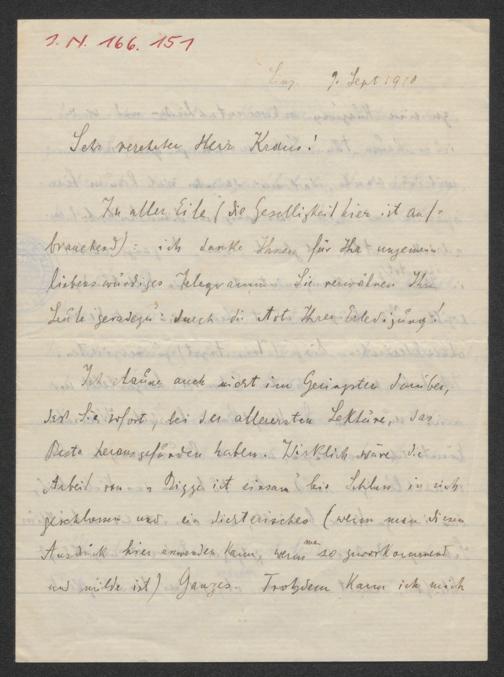 I. N. 166.151
9. Sept 1910
Sehr verehrter Herr Kraus!
In aller Eile (die Geselligkeit hier ist auf-
brauchend): ich danke Ihnen für Ihr ungemein
liebenswürdiges Telegramm. Sie verwöhnen Ihre
Leute geradezu: durch die Art Ihrer Erledigung!
Ich staune auch nicht im Geringsten darüber,
dass Sie sofort bei der allerersten Lektüre, das
Beste herausgefunden haben. Wirklich wäre die
Arbeit von „ ist einsam" bis Schluss in sich
geschlossen und ein dichterisches (wenn man diesen
Ausdruck hier anwenden kann, wenn man so zuvorkommend
und milde ist) Ganzes. Trotzdem kann ich mich